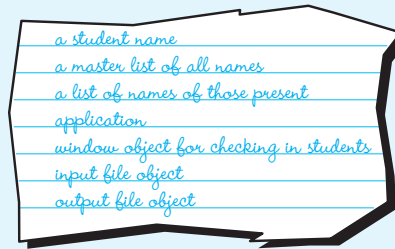 a student name
a master list of all names
a list of names of those present
application
window object for checking in students
input file object
output file object